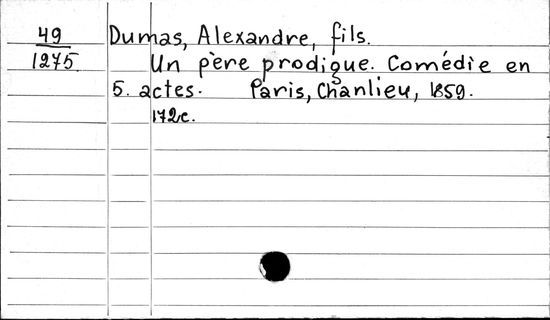 49 Dumas, Alexandre, fils.
1275 Un père prodigue. Comédie en
5. actes. Paris, Chanlieu, 1859.
172c.